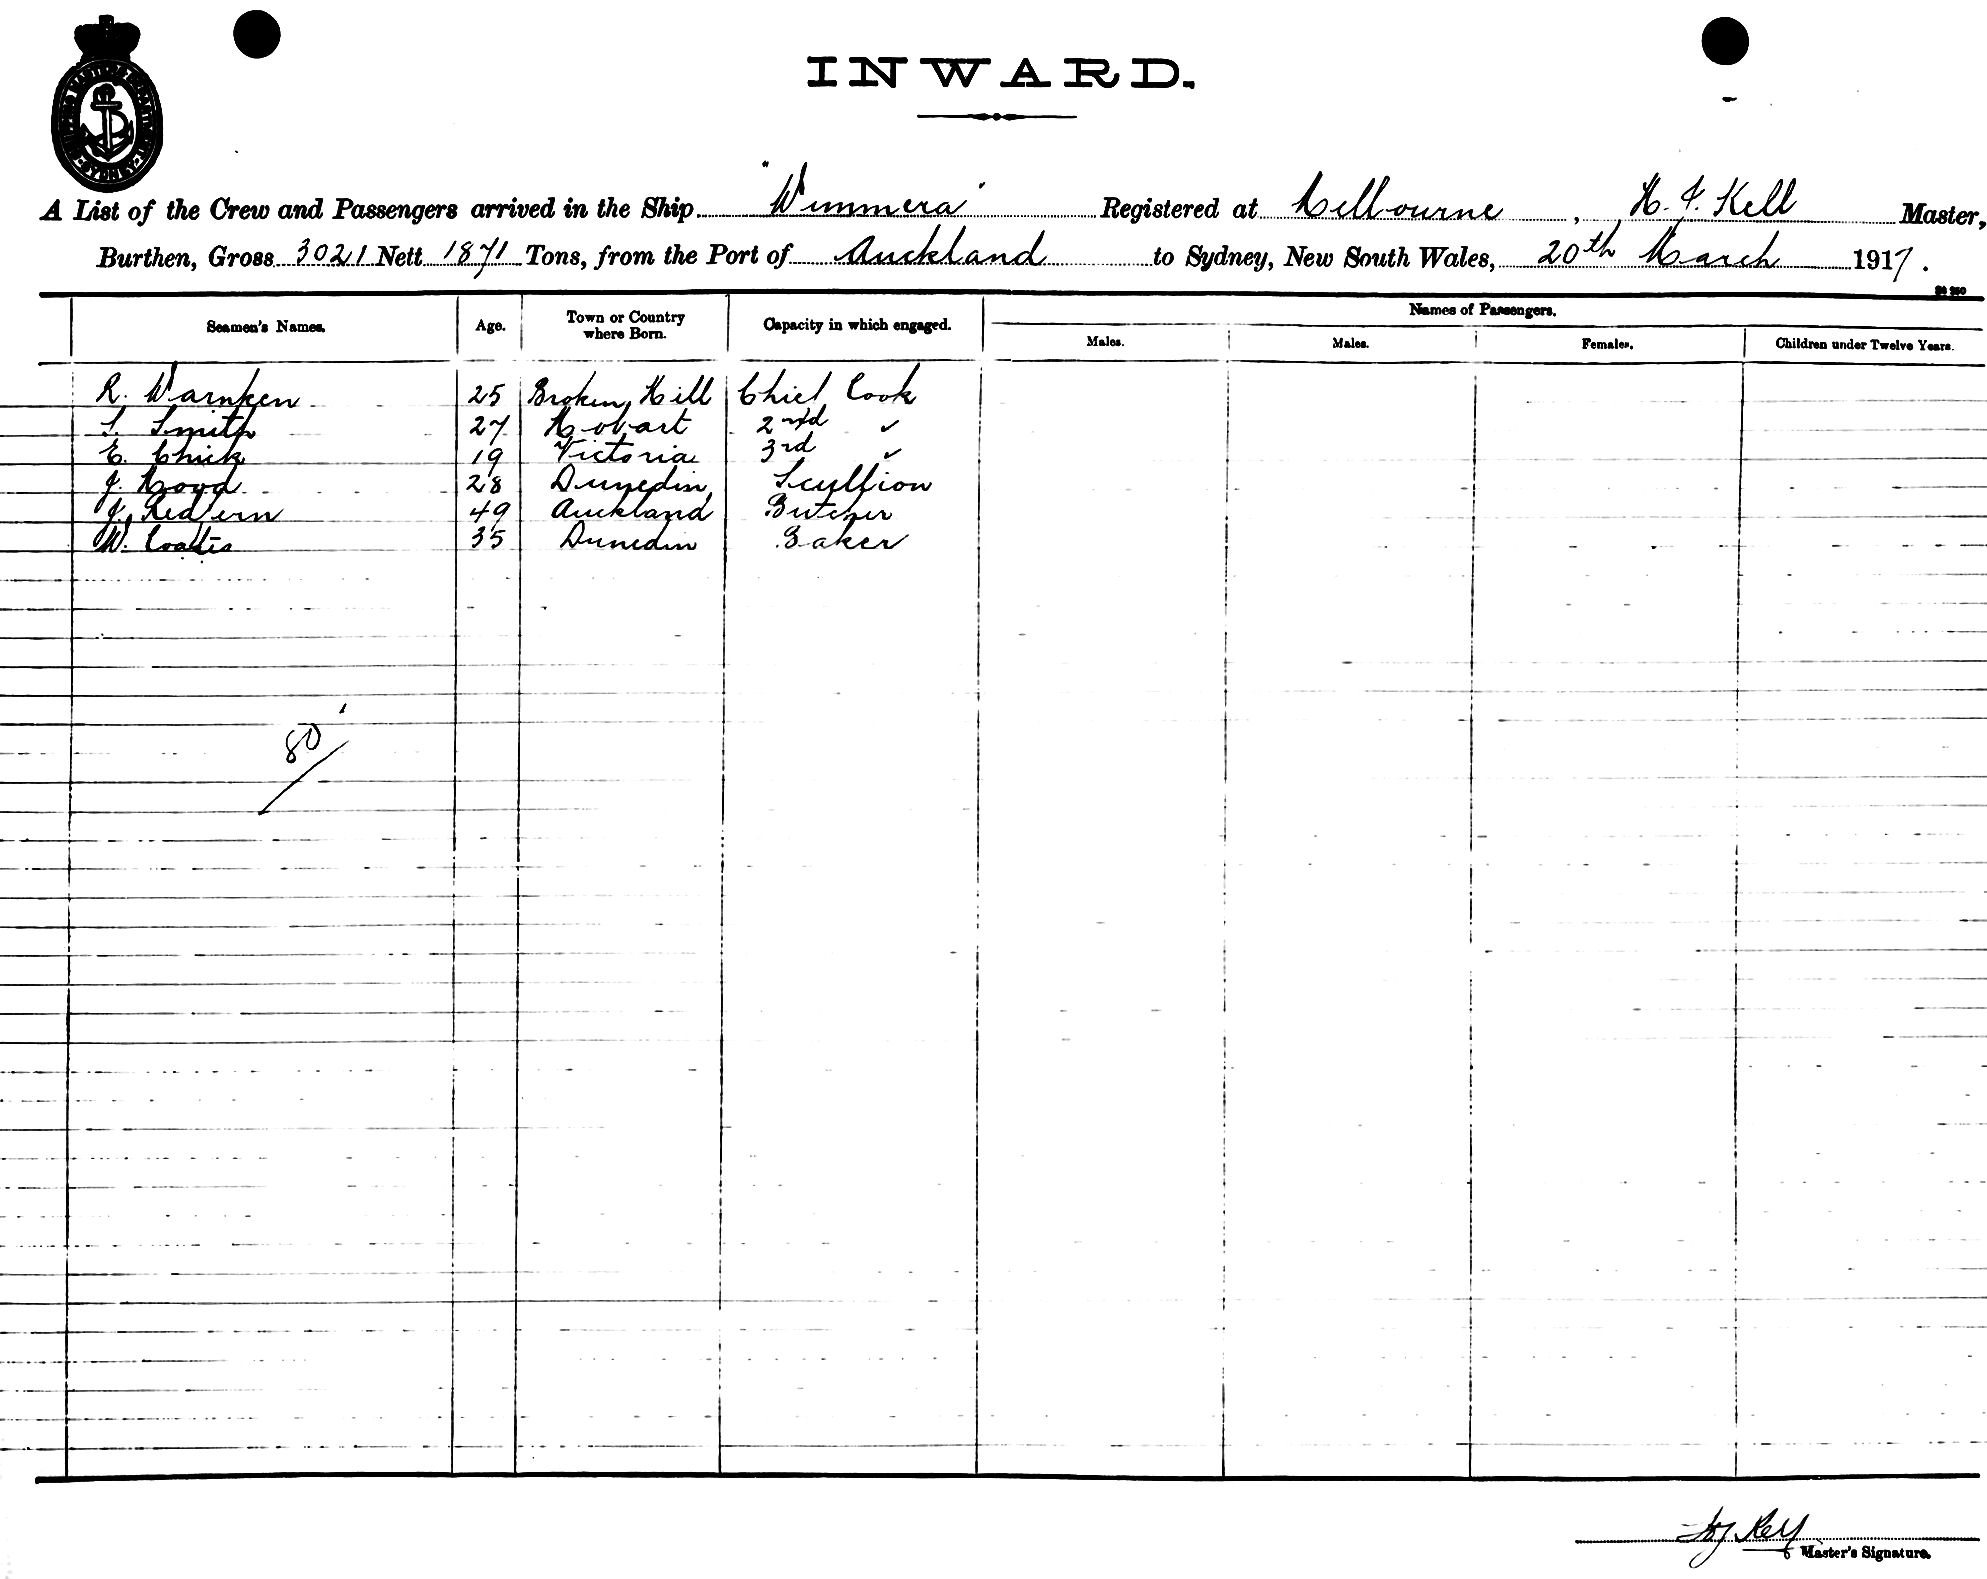 INWARD.
SHIPPING MASTERS DEPARTMENT SYDNEY
A List of the Crew and Passengers arrived in the Ship "Wimmera" Registered at Melbourne, H. J. Kell Master,
Burthen, Gross 3021 Nett 1871 Tons, from the Port of Auckland to Sydney, New South Wales, 20th March 1917.
Seamen's Names. Age. Town or Country where Born. Capacity in which engaged. Names of Passengers.
Males. Males. Females. Children under Twelve Years.
R. Warnken 25 Broken Hill Chief Cook
S. Smith 27 Hobart 2nd "
E. Chick 19 Victoria 3rd "
J. 28 Dunedin Scullion
J. Redfern 49 Auckland Butcher
W. Coates 35 Dunedin Baker
80
Kell
Master's Signature.